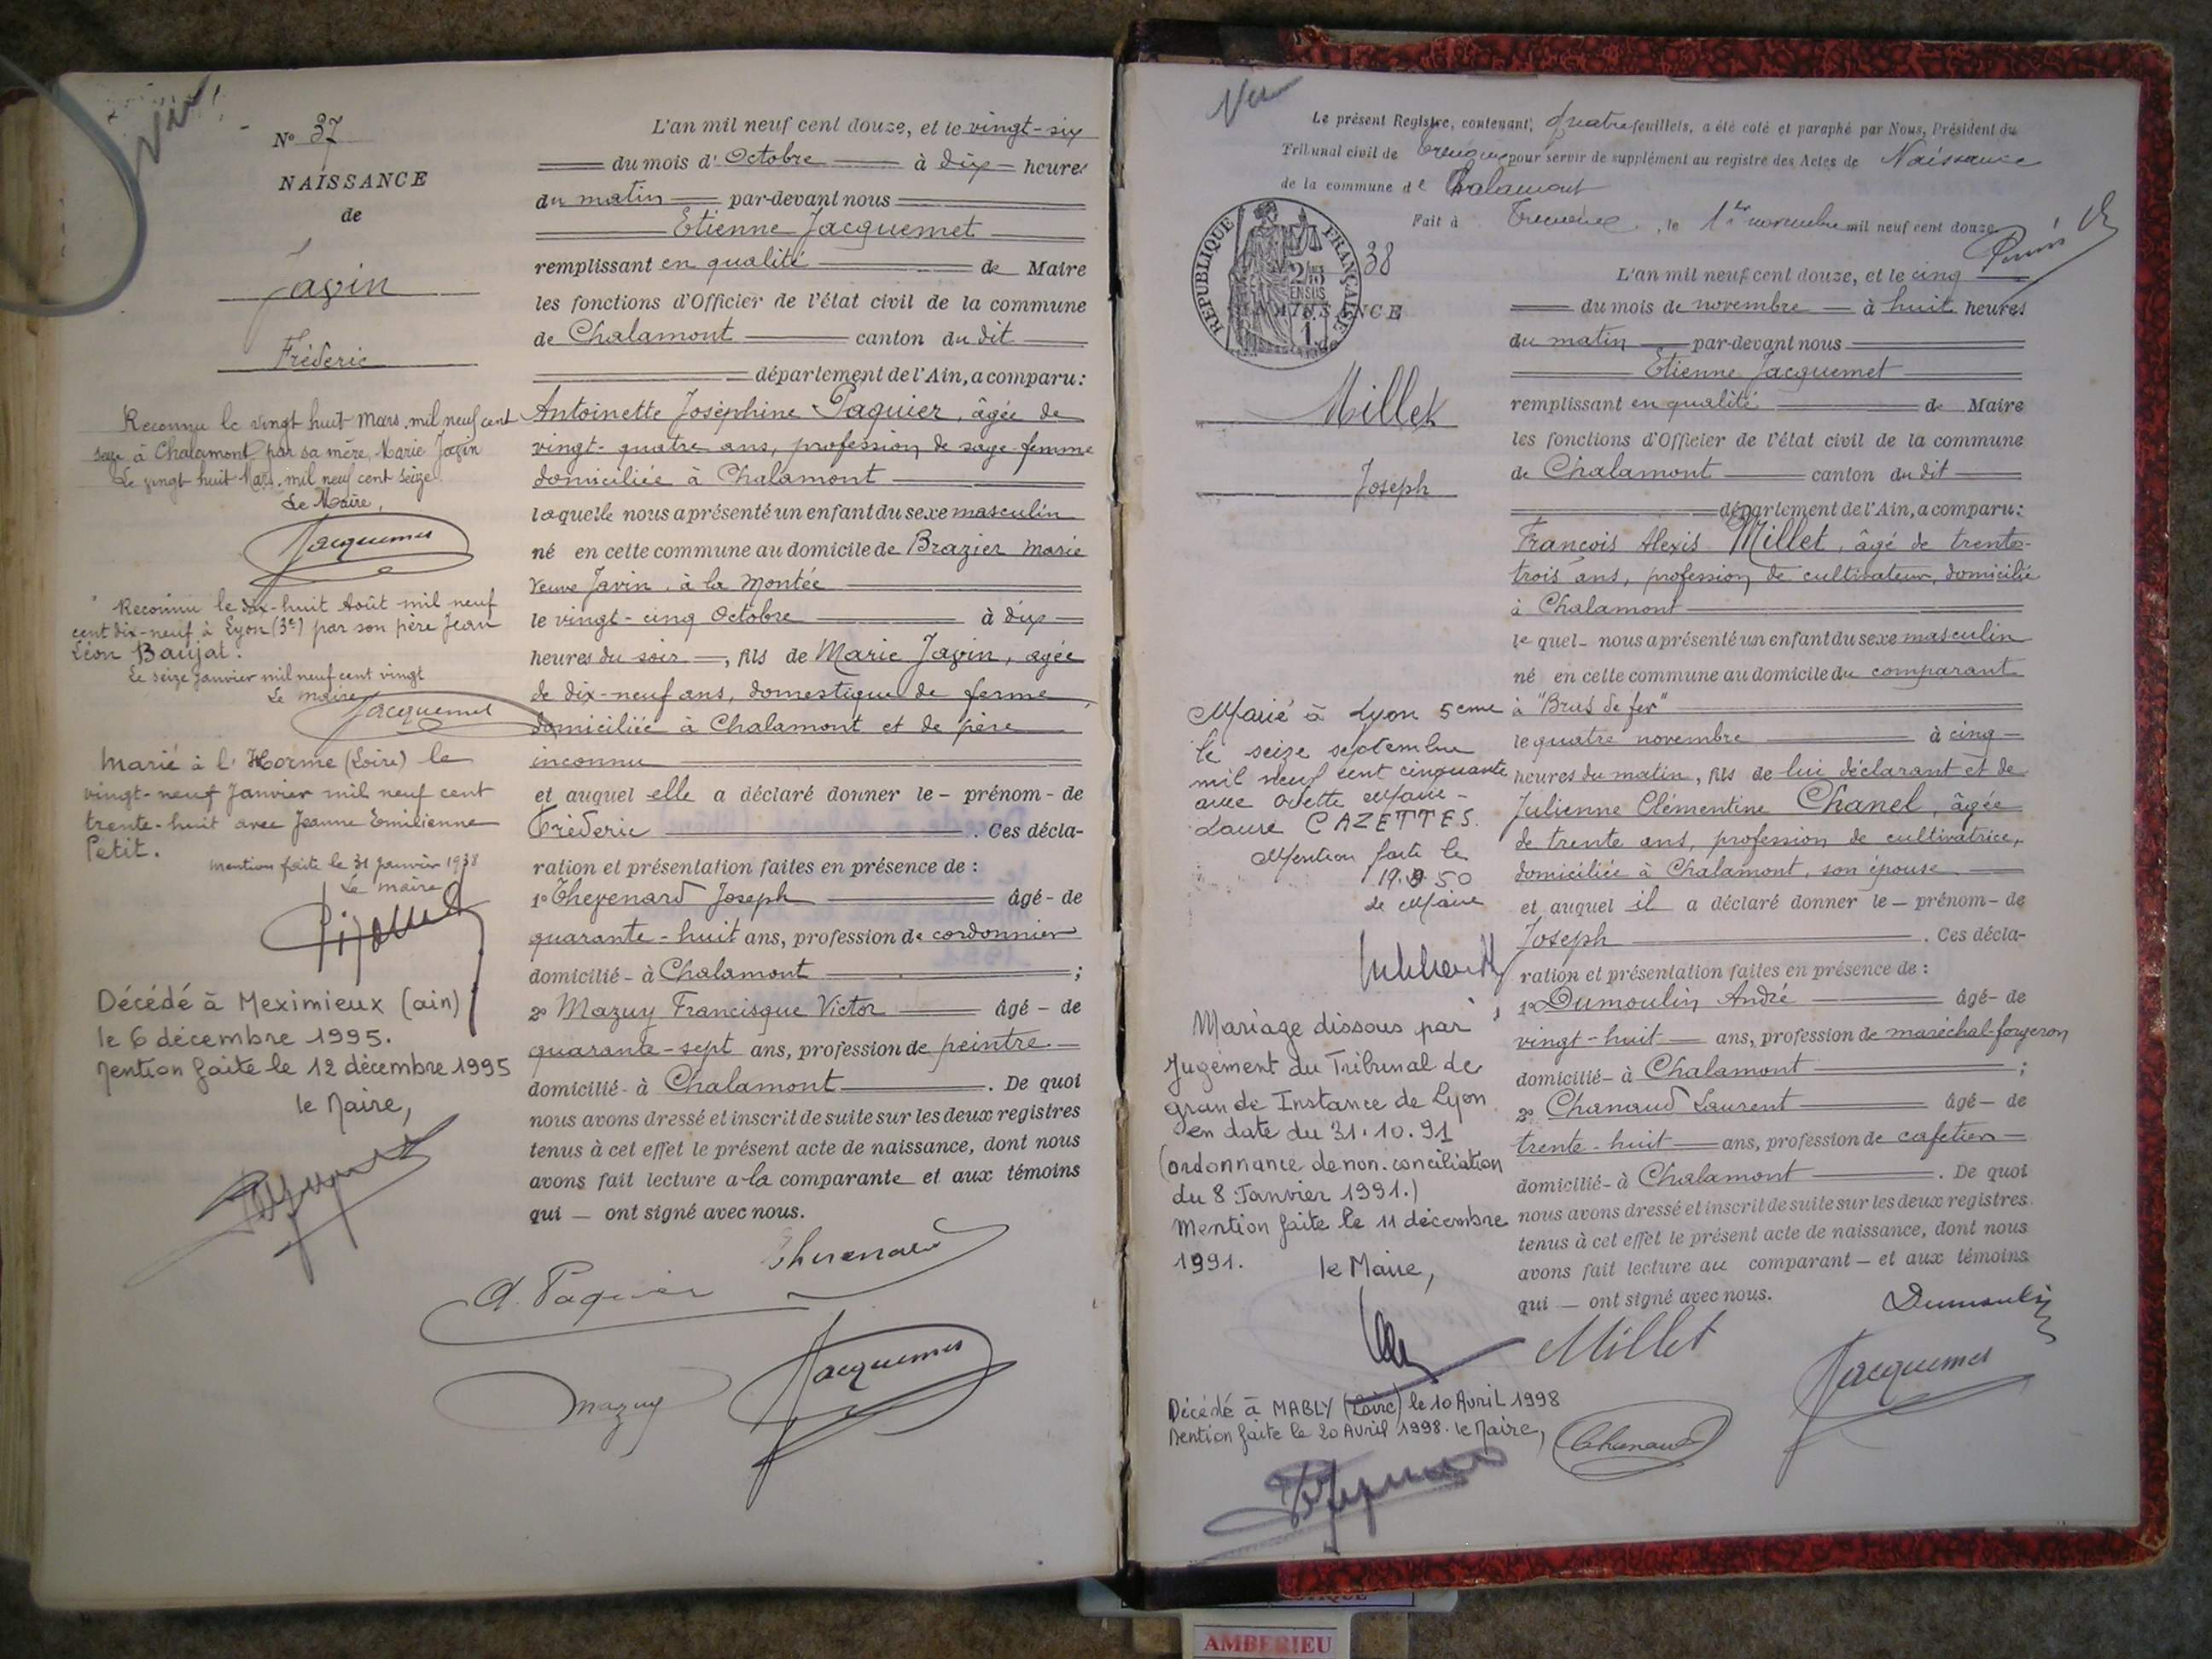 Nº 37
NAISSANCE
de
Javin
Fréderic
Reconnu le vingt huit Mars mil neuf cent
seize à Chalamont par sa mère, Marie Javin
Le vingt huit Mars mil neuf cent seize.
Le Maire,
Jacquemet
Reconnu le dix-huit Août mil neuf
cent dix-neuf à Lyon (3e) par son père Jean
Léon Baujat.
Le seize Janvier mil neuf cent vingt
Le maire
Jacquemet
Marié à l'Horme (Loire) le
vingt-neuf Janvier mil neuf cent
trente-huit avec Jeanne Emilienne
Petit.
mention faite le 31 janvier 1938
Le maire
Décédé à Meximieux (ain)
le 6 décembre 1995.
Mention faite le 12 décembre 1995
le Maire,
L'an mil neuf cent douze, et le vingt-six
du mois d'Octobre à dix heures
du matin par-devant nous
Etienne Jacquemet
remplissant en qualité de Maire
les fonctions d'Officier de l'état civil de la commune
de Chalamont canton du dit
département de l'Ain, a comparu:
Antoinette Joséphine Paquier, âgée de
vingt-quatre ans, profession de sage-femme
domiciliée à Chalamont
laquelle nous a présenté un enfant du sexe masculin
né en cette commune au domicile de Brazier Marie
Veuve Javin, à la Montée
le vingt-cinq Octobre à dix
heures du soir, fils de Marie Javin, agée
de dix-neuf ans, domestique de ferme,
domiciliée à Chalamont et de père
inconnu
et auquel elle a déclaré donner le - prénom - de
Fréderic. Ces décla-
ration et présentation faites en présence de :
1º Thevenard Joseph âgé - de
quarante-huit ans, profession de cordonnier
domicilié - à Chalamont ;
2º Mazuy Francisque Victor âgé - de
quarante-sept ans, profession de peintre
domicilié - à Chalamont. De quoi
nous avons dressé et inscrit de suite sur les deux registres
tenus à cet effet le présent acte de naissance, dont nous
avons fait lecture a la comparante et aux témoins
qui — ont signé avec nous.
Thevenard
A. Paquier
Mazuy
Jacquemet
Vu
Le présent Registre, contenant, quatre feuillets, a été coté et paraphé par Nous, Président du
Tribunal civil de Trévoux pour servir de supplément au registre des Actes de Naissance
de la commune de Chalamont
Fait à Trévoux, le 1er novembre mil neuf cent douze
RÉPUBLIQUE FRANÇAISE
38
NAISSANCE
Millet
Joseph
Marié à Lyon 5eme
le seize septembre
mil neuf cent cinquante
avec Odette Marie-
Laure CAZETTES.
Mention faite le
19.9 50
Le Maire
Mariage dissous par
Jugement du Tribunal de
grande Instance de Lyon
en date du 31.10.91
(ordonnance de non-conciliation
du 8 Janvier 1991.)
Mention faite le 11 décembre
1991.
le Maire,
Décédé à MABLY (Loire) le 10 Avril 1998
Mention faite le 20 Avril 1998. le Maire,
L'an mil neuf cent douze, et le cinq
du mois de novembre à huit heures
du matin par-devant nous
Etienne Jacquemet
remplissant en qualité de Maire
les fonctions d'Officier de l'état civil de la commune
de Chalamont canton du dit
département de l'Ain, a comparu:
François Alexis Millet, âgé de trente-
trois ans, profession de cultivateur, domicilié
à Chalamont
le quel - nous a présenté un enfant du sexe masculin
né en cette commune au domicile du comparant
à "Bras de fer"
le quatre novembre à cinq
heures du matin, fils de lui déclarant et de
Julienne Clémentine Chanel, âgée
de trente ans, profession de cultivatrice,
domiciliée à Chalamont, son épouse
et auquel il a déclaré donner le - prénom - de
Joseph. Ces décla-
ration et présentation faites en présence de :
1º Dumoulin André âgé - de
vingt-huit ans, profession de maréchal-forgeron
domicilié - à Chalamont ;
2º Chanaud Laurent âgé - de
trente-huit ans, profession de cafetier
domicilié - à Chalamont. De quoi
nous avons dressé et inscrit de suite sur les deux registres
tenus à cet effet le présent acte de naissance, dont nous
avons fait lecture au comparant — et aux témoins
qui — ont signé avec nous.
Dumoulin
Millet
Jacquemet
Chanaud
AMBERIEU